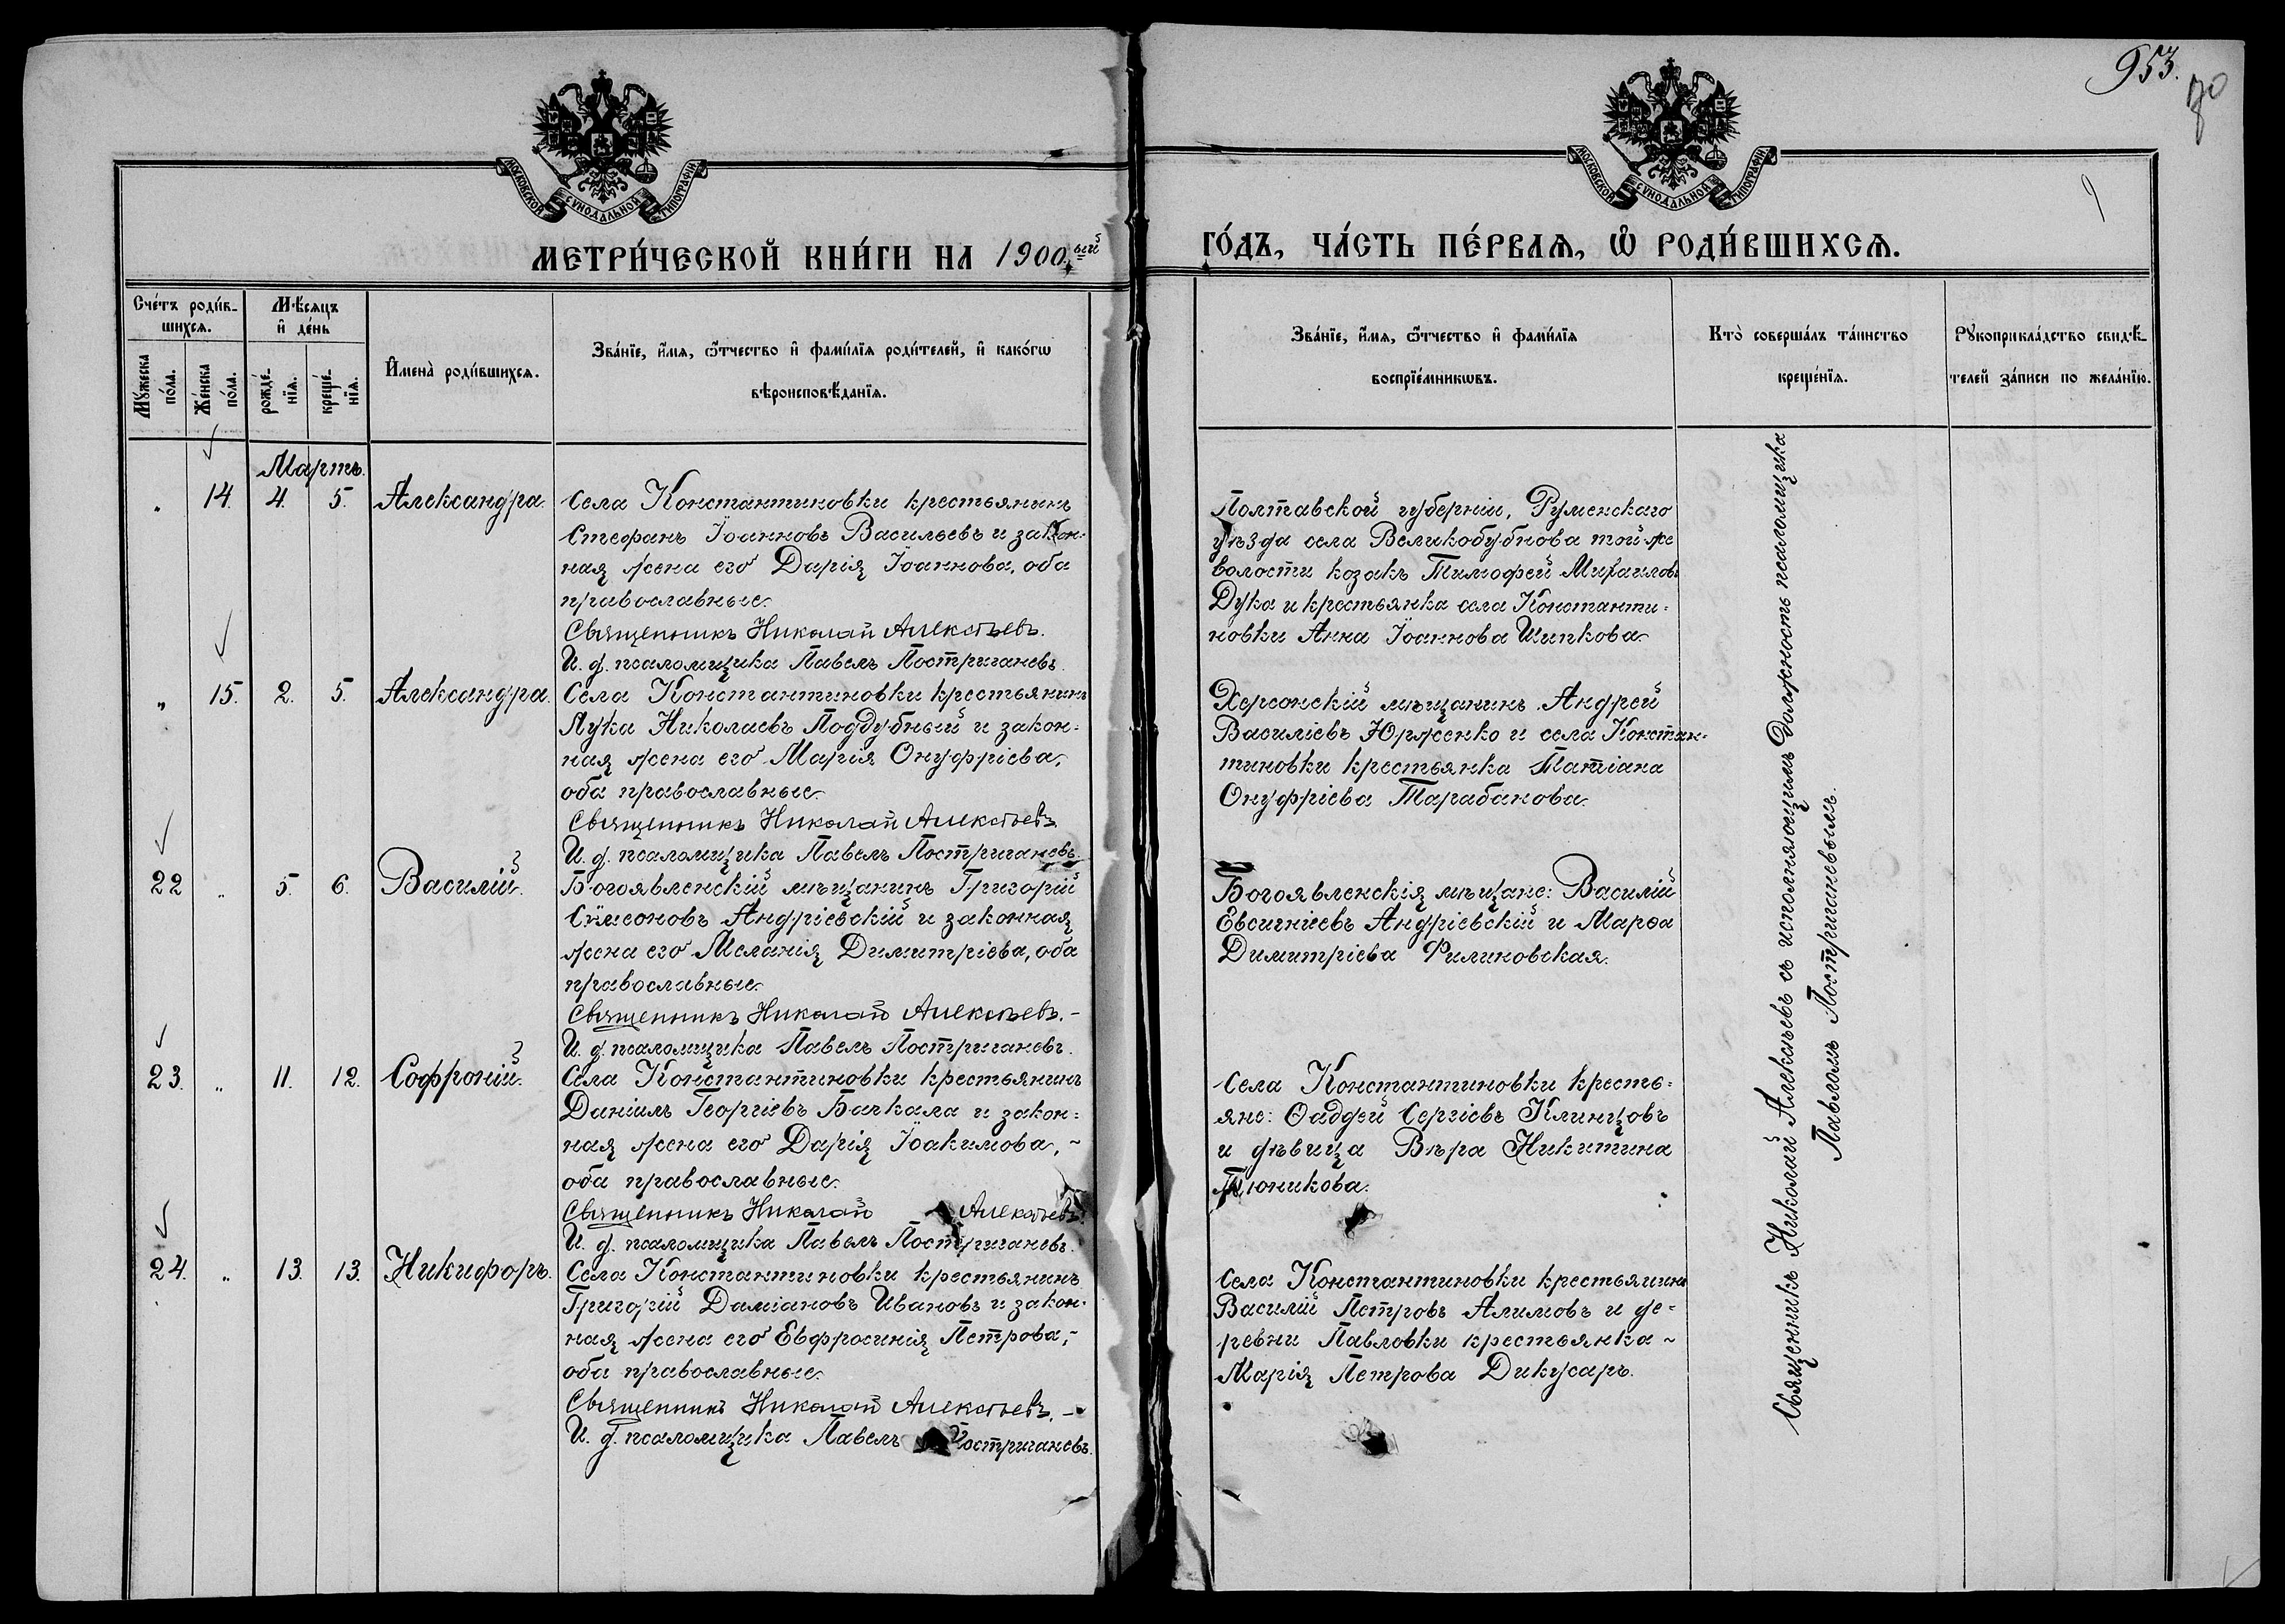 953.
70
МОСКОВСКОЙ СѴНОДАЛЬНОЙ ТИПОГРАФІИ
МОСКОВСКОЙ СѴНОДАЛЬНОЙ ТИПОГРАФІИ
МЕТРИ́ЧЕСКОЙ КНИ́ГИ НА 1900.ый ГО́ДЪ, ЧА́СТЬ ПЕ́РВАѦ, Ѽ РОДИ́ВШИХСѦ.
Сче́тъ роди́в-
шихсѧ.
Мꙋжеска по́ла.
Же́нска по́ла.
Мѣ́сѧцъ
и҆ де́нь
рожде́-
нїѧ.
креще́-
нїѧ.
И҆мена̀ роди́вшихсѧ.
Зва́нїе, и҆́мѧ, ѻ҆́тчество и҆ фами́лїѧ роди́телей, и҆ како́гѡ
вѣроисповѣ́данїѧ.
Зва́нїе, и҆́мѧ, ѻ҆́тчество и҆ фами́лїѧ
воспрїе́мникѡвъ.
Кто̀ соверша́лъ та́инство
креще́нїѧ.
Рꙋкоприкла́дство свидѣ́-
телей за́писи по жела́нїю.
Мартъ.
„ 14. 4. 5. Александра.
Села Константиновки крестьянинъ
Стефанъ Іоанновъ Васильевъ и закон-
ная жена его Дарія Іоаннова, оба
православные.
Священникъ Николай Алексѣевъ.
И. д. псаломщика Павелъ Постригачевъ.
Полтавской губерніи, Руменскаго
уѣзда села Великобубнова той же
волости козакъ Тимофей Михаиловъ
Дука и крестьянка села Константи-
новки Анна Іоаннова Шипкова.
„ 15. 2. 5. Александра.
Села Константиновки крестьянинъ
Лука Николаевъ Поддубный и закон-
ная жена его Марія Онуфріева,
оба православные.
Священникъ Николай Алексѣевъ.
И. д. псаломщика Павелъ Постригачевъ.
Херсонскій мѣщанинъ Андрей
Василіевъ Юрженко и села Констан-
тиновки крестьянка Татіана
Онуфріева Тарабанова.
22 „ 5. 6. Василій.
Богоявленскій мѣщанинъ Григорій
Симеоновъ Андріевскій и законная
жена его Меланія Димитріева, оба
православные.
Священникъ Николай Алексѣевъ.-
И. д. псаломщика Павелъ Постригачевъ.
Богоявленскія мѣщане: Василій
Евсигніевъ Андріевскій и Марѳа
Димитріева Филиновская.
23. „ 11. 12. Софроній.
Села Константиновки крестьянинъ
Даніилъ Георгіевъ Бачкала и закон-
ная жена его Дарія Іоакимова,~
оба православные.
Священникъ Николай Алексѣевъ.
И. д. псаломщика Павелъ Постригачевъ.
Села Константиновки кресть-
яне: Ѳаддей Сергіевъ Клинцовъ
и дѣвица Вѣра Никитина
Тюникова.
24. „ 13. 13. Никифоръ.
Села Константиновки крестьянинъ
Григорій Даміановъ Ивановъ и закон-
ная жена его Евфросинія Петрова,-
оба православные.
Священникъ Николай Алексѣевъ.-
И. д. псаломщика Павелъ Постригачевъ.
Села Константиновки крестьянинъ
Василій Петровъ Алимовъ и де-
ревни Павловки крестьянка ~
Марія Петрова Дикусаръ.
Священникъ Николай Алексѣевъ съ исполняющимъ должность псаломщика
Павломъ Постригачевымъ.